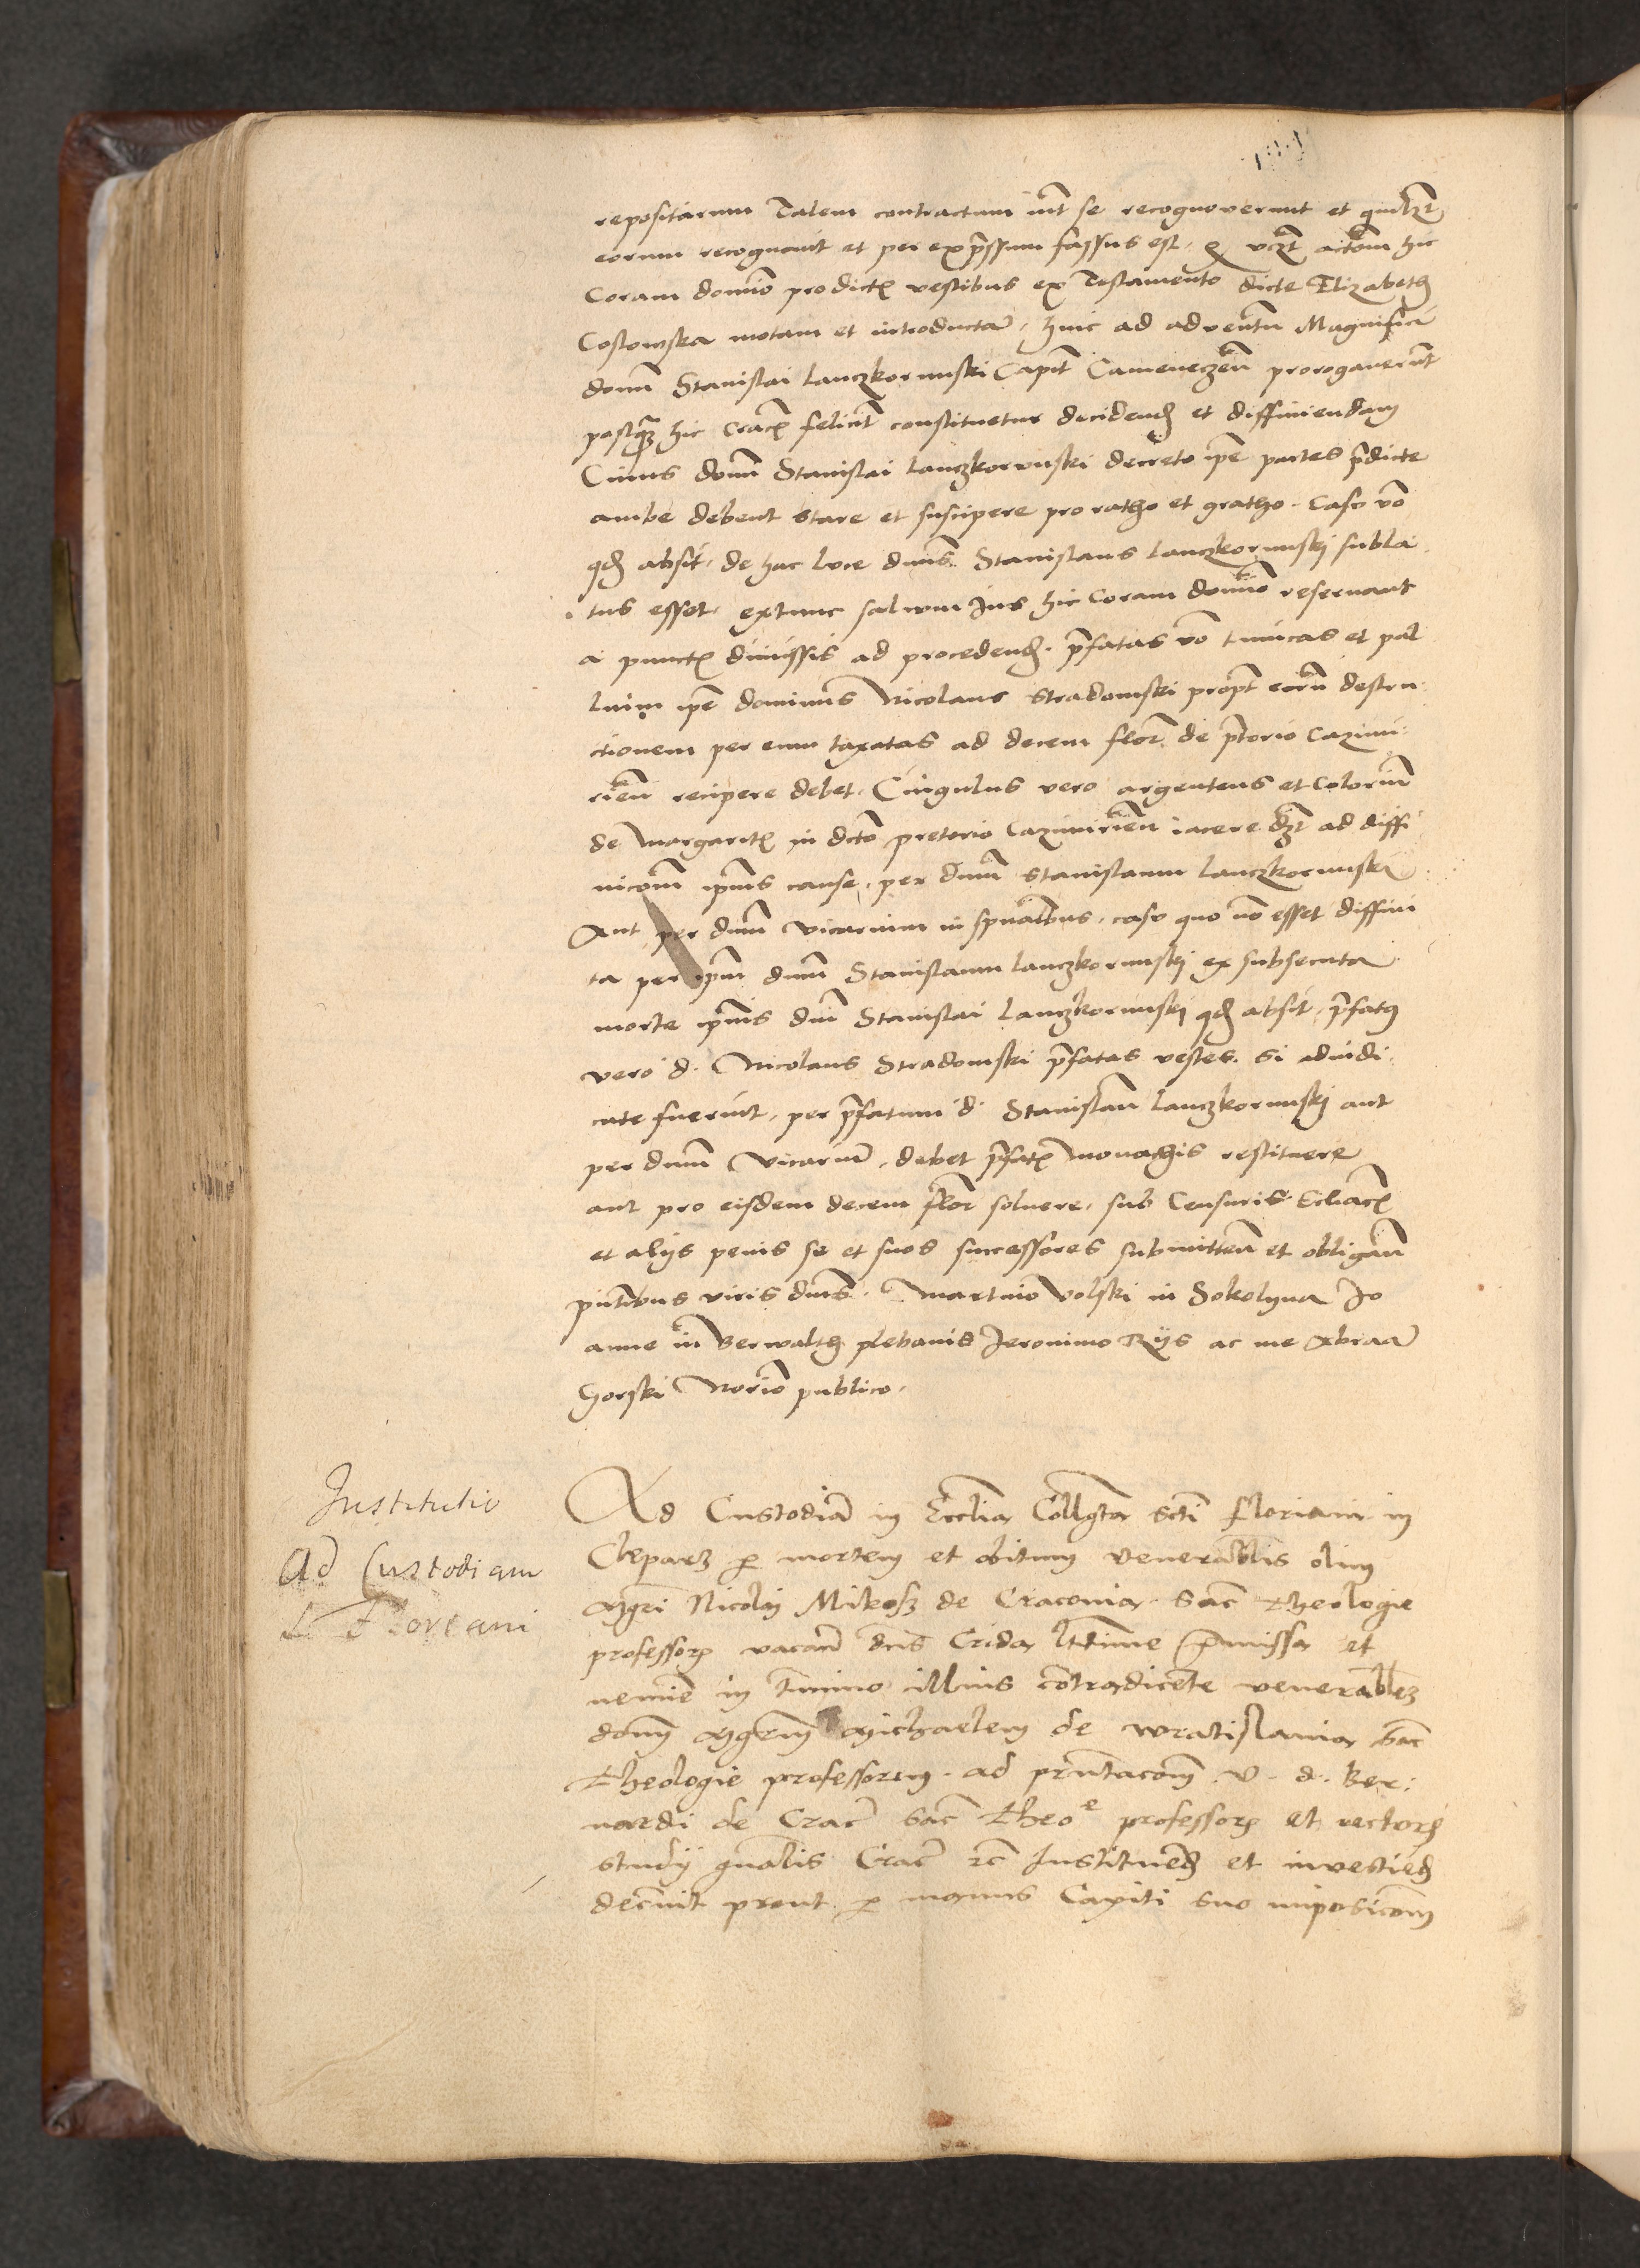 repositarum Talem contractum int se recognoverunt et quilzt
eorum recognouit et per expressum fassus est, q vczt actom hic
Coram domio pro dictis vestibus ex Testamento dicte Elizabeth
Costowska motam et introductam, huic ad adventum Magnifici
domi Stanislai Lanczkorunski Capit Cameneczen prorogaverunt
postquam hic Crac felicit constituetur decidendam et diffiniendam
Cuius domi Stanislai Lanczkorunski decreto ipe partes predicte
ambe debent stare et suscipere pro ratho et gratho. Casu vo
qd absit, de hac luce dnus Stanislaus Lanczkorunskj subla
tus esset, extunc salvum Jus hic Coram domio reservant
a punctis dimissis ad procedendum. prefatas vo tunicas et pal
lium ipe dominus Nicolaus Stradomski propt eorum destru
ctionem per eum taxatas ad decem flor de pretorio Cazimi
rien recipere debet. Cingulus vero argenteus et Colorium
de margaritis in dcto pretorio Cazimirien iacere dzt ad diffi
nicom ipius cause, per dnum Stanislaum Lanczkorunski
Aut per dnum Vicarium in spualibus, casu quo no esset diffini
ta per ipm dnum Stanislaum Lanczkorunskj ex subsecuta
morte ipius dni Stanislai Lanczkorunskj qd absit, prefatus
vero d. Nicolaus Stradomski prefatas vestes. si adiudi
cate fuerint, per prefatum d. Stanislaum Lanczkorunskj aut
per dnum Vicarium, debet prefatis monachis restituere
aut pro eisdem decem flor solvere, sub Censuris Ecliacis
et alijs penis se et suos successores submitten et obligan
pntibus viris dnis. Martino Volski in Sokolyna Jo
anne in Berwalth plebanis Jeronimo Rijs ac me Abraam
Gorski Notrio publico.
Institutio
Ad Custodiam
S. Floriani
Ad Custodiam in Ecclia Collegta scti Floriani in
Cleparz per mortem et obitum venerabilis olim
Mgri Nicolaj Mikosz de Craconia. sac theologie
professoris vacan dnus Crida lttime premissa et
nemine in termino illius contradicente venerabilem
domm Mgrum Michaelem de Wratislauia sac
theologie professorem. ad pntacom v. d. Ber
nardi de Crac sac theoe professoris et rectoris
studij gnalis Crac Instituendum et investiendum
decrevit prout per manus Capiti suo imposicom